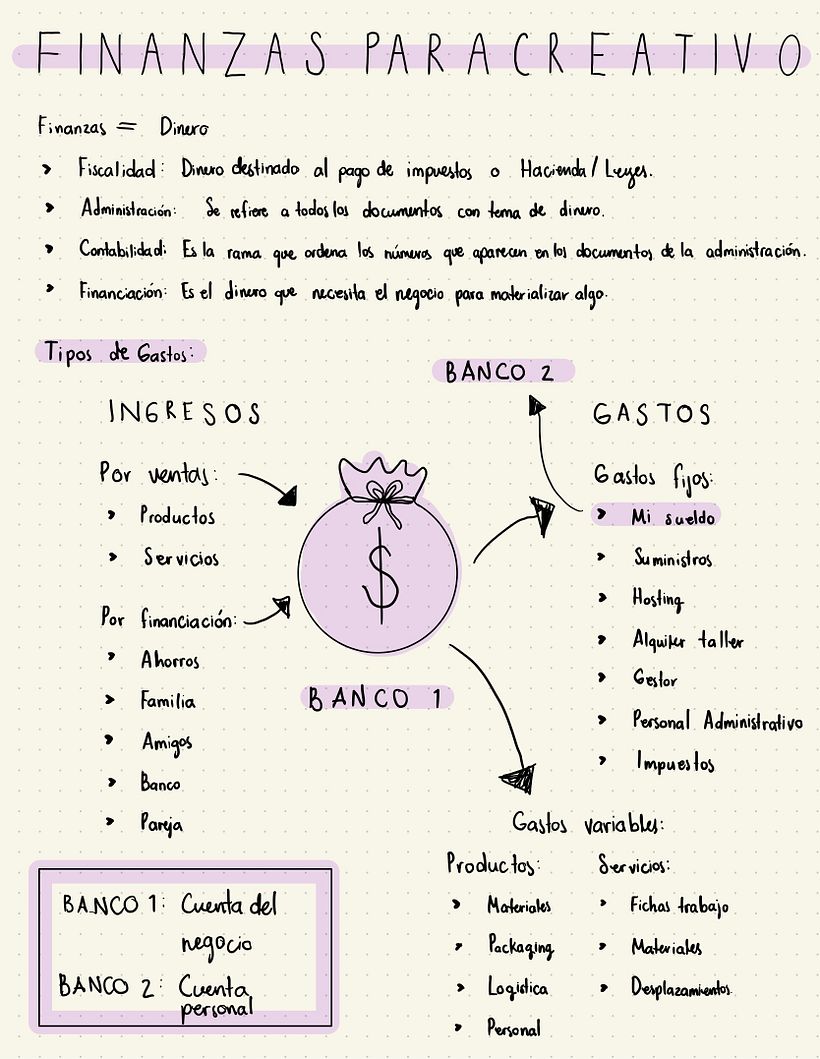 FINANZAS PARA CREATIVO
Finanzas = Dinero
Fiscalidad: Dinero destinado al pago de impuestos o Hacienda/Leyes.
Administración: Se refiere a todos los documentos con tema de dinero.
Contabilidad: Es la rama que ordena los números que aparecen en los documentos de la administración.
Financiación: Es el dinero que necesita el negocio para materializar algo.
Tipos de Gastos:
BANCO 2
INGRESOS
GASTOS
Por ventas:
Productos
Servicios
Por financiación:
Ahorros
Familia
Amigos
Banco
Pareja
$
BANCO 1
Gastos fijos:
Mi sueldo
Suministros
Hosting
Alquiler taller
Gestor
Personal Administrativo
Impuestos
Gastos variables:
Productos:
Materiales
Packaging
Logística
Personal
Servicios:
Fichas trabajo
Materiales
Desplazamientos
BANCO 1: Cuenta del
negocio
BANCO 2: Cuenta
personal